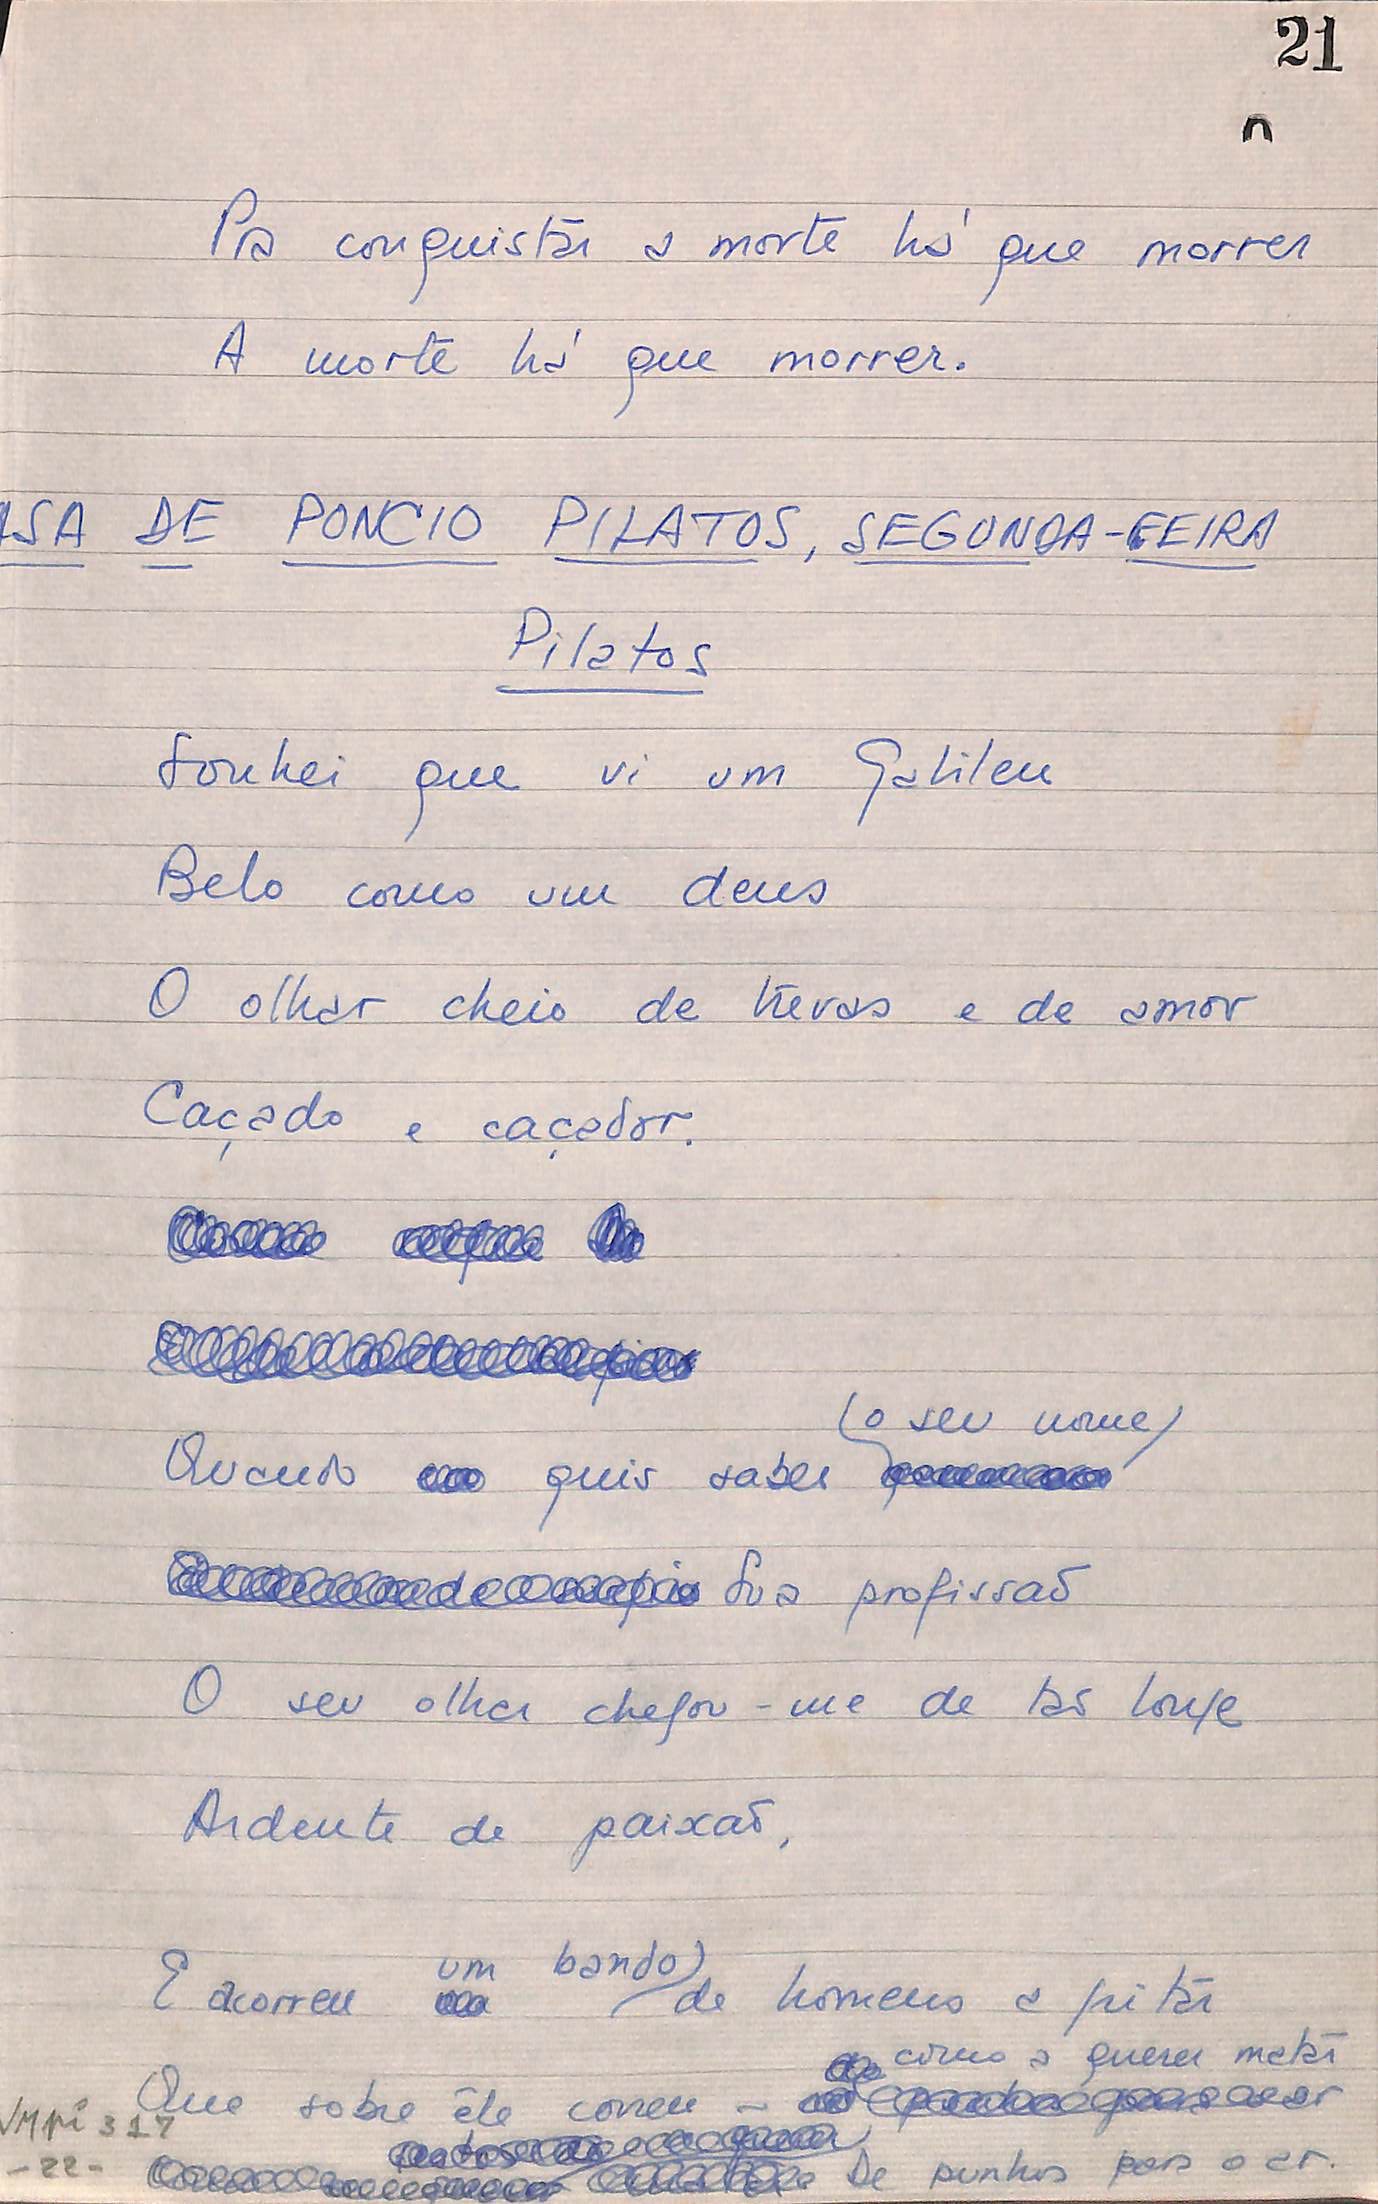 21
Pra conquistar a morte há que morrer
A morte há que morrer.
ASA DE PONCIO PILATOS, SEGUNDA-FEIRA
Pilatos
Sonhei que vi um Galileu
Belo como um deus
O olhar cheio de trevas e de amor
Caçado e caçador.
(o seu nome)
Quando quis saber
Sua profissão
O seu olhar chegou-me de tão longe
Ardente de paixão,
um bando
E acorreu de homens a gritar
como a querer matar
Que sobre êle correu -
De punhos para o ar.
VMpi 317
-22-